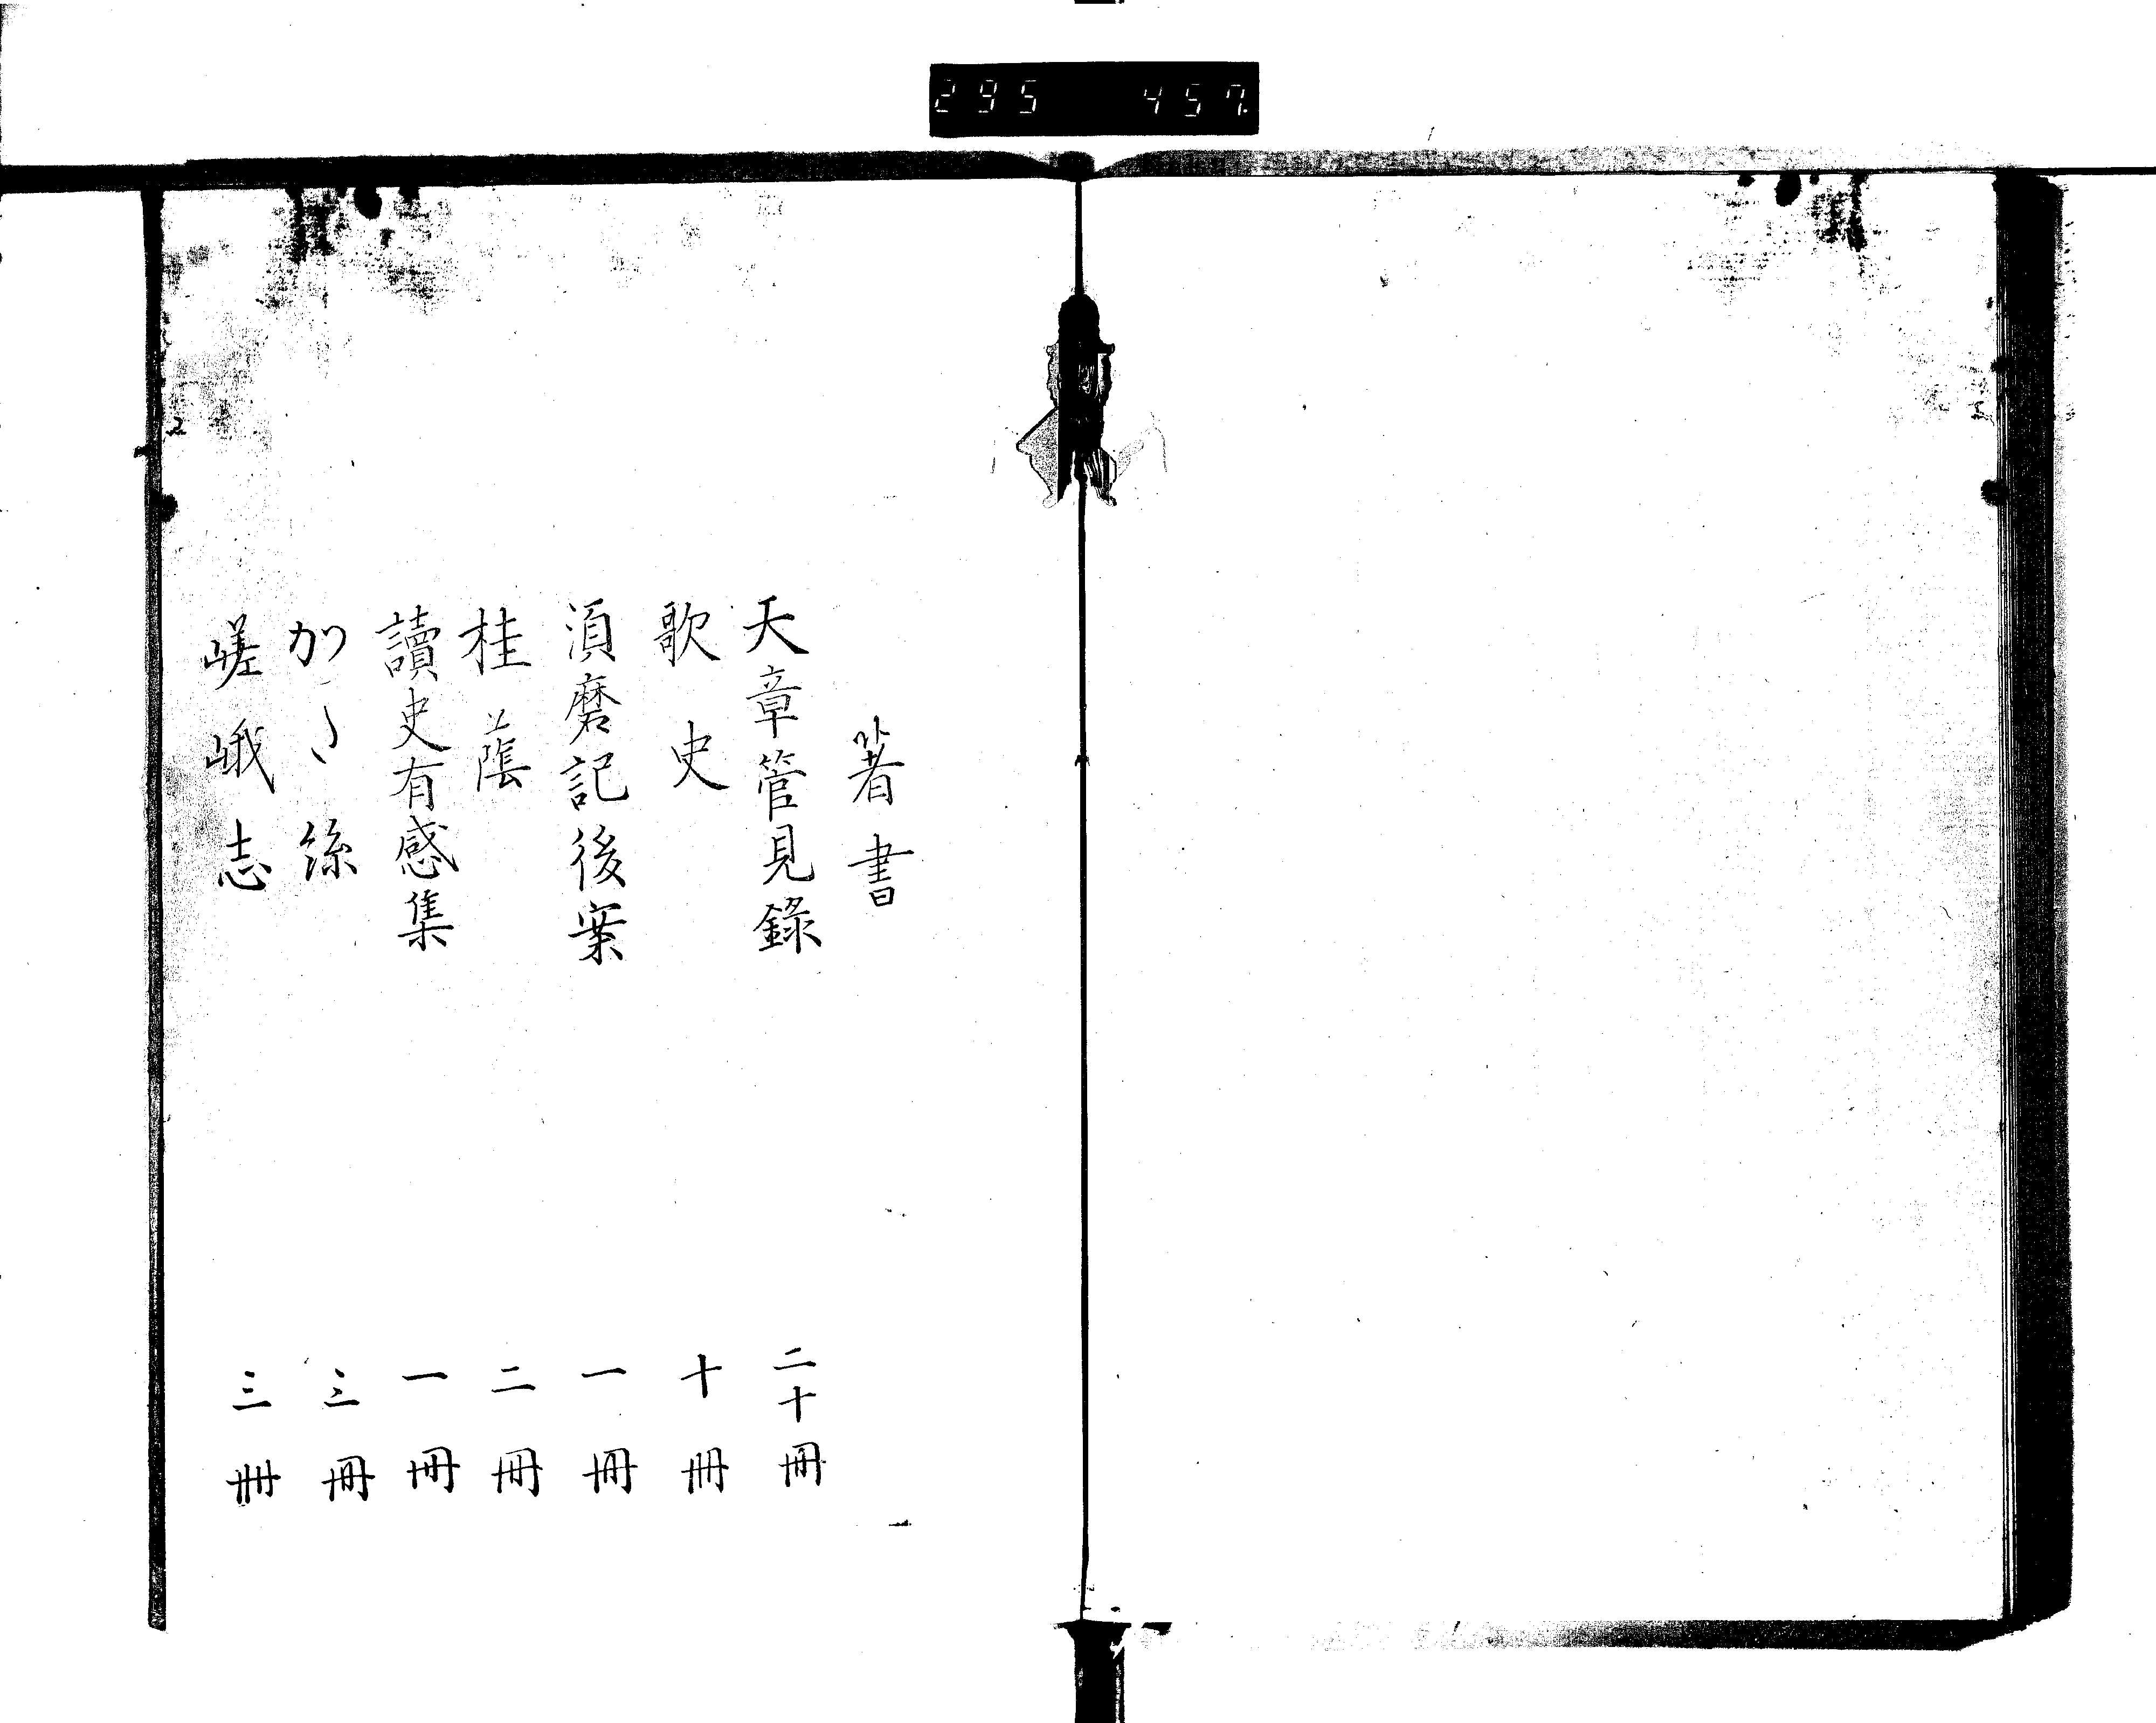 295 457
著書
天章管見錄 二十冊
歌史 十冊
須磨記後案 一冊
桂蔭 二冊
讀史有感集 一冊
かゝ絲 三冊
嵯峨志 三冊